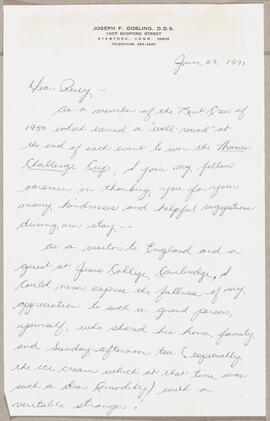 JOSEPH F. GOSLING, D.D.S.
1407 BEDFORD STREET
STAMFORD, CONN. 06905
TELEPHONE
June 23, 1971
Dear Percy, -
As a member of the Kent Crew of
1950 which earned a "well-rowed" at
the end of each event to win the Thames
Challenge Cup, I join my fellow
oarsmen in thanking you for your
many kindnesses and helpful suggestions
during our stay. --
As a visitor to England and a
guest at Jesus College, Cambridge, I
could never express the fullness of my
appreciation to such a grand person,
yourself, who shared his home, family
and Sunday-afternoon tea (especially
the ice cream which at that time was
such a dear commodity) with a
veritable stranger!